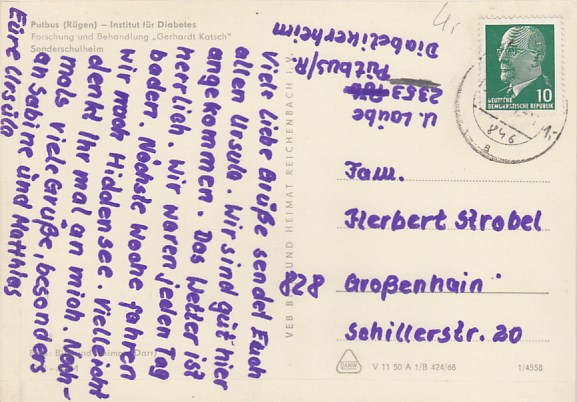 Putbus (Rügen) – Institut für Diabetes
Forschung und Behandlung „Gerhardt Katsch"
Sonderschulheim
Viele liebe Grüße sendet Euch
allen Ursula. Wir sind gut hier
angekommen. Das Wetter ist
herrlich. Wir waren jeden Tag
baden. Nächste Woche fahren
wir nach Hiddensee. Vielleicht
denkt Ihr mal an mich. Noch-
mals viele Grüße, besonders
an Sabine und Mattias
Eure Ursula
VEB BILD UND HEIMAT REICHENBACH I. V.
U. Laube
2353
Putbus/R
Diabetikerheim
4,-
DEUTSCHE
DEMOKRATISCHE REPUBLIK
10
1,-
846
a
Fam.
Herbert Strobel
828 Großenhain
Schillerstr. 20
V 11 50 A 1/B 424/68
1/4558